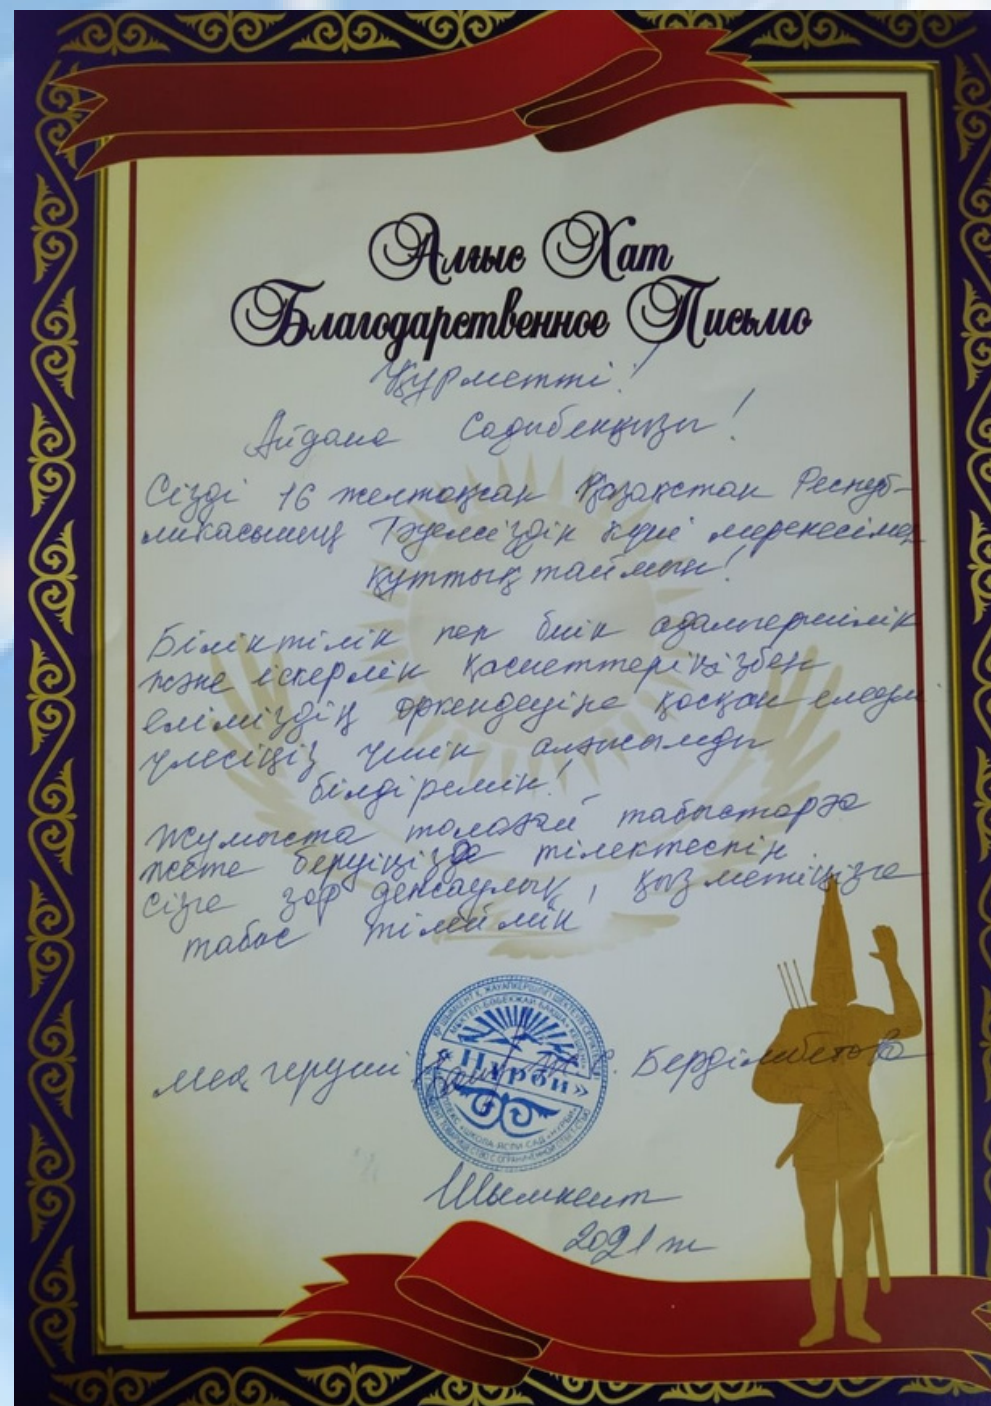 Алғыс Хат
Благодарственное Письмо
Құрметті!
Айдана Садибекқызы!
Сізді 16 желтоқсан Қазақстан Респуб-
ликасының Тәуелсіздік күні мерекесімен
құттықтаймын!
Біліктілік пен биік адамгершілік
және іскерлік қасиеттеріңізбен
еліміздің өркендеуіне қосқан елеулі
үлесіңіз үшін алғысымды
білдіремін!
Жұмыста толағай табыстарға
жете беруіңізде тілектеспін
Сізге зор денсаулық, қызметіңізге
табыс тілеймін
Меңгеруші Бердімбетова
МЕКТЕП-БӨБЕКЖАЙ-БАҚША
«Нұрби»
ШКОЛА-ЯСЛИ-САД «НУРБИ»
Шымкент
2021 ж